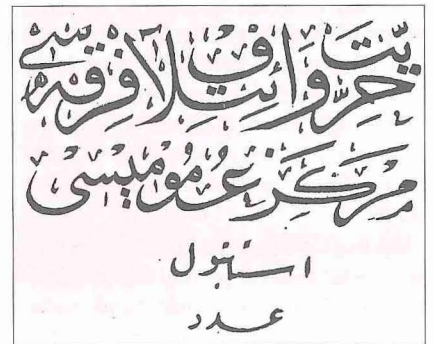 حريت وائتلاف فرقه سى
مركز عموميسى
استانبول
عدد